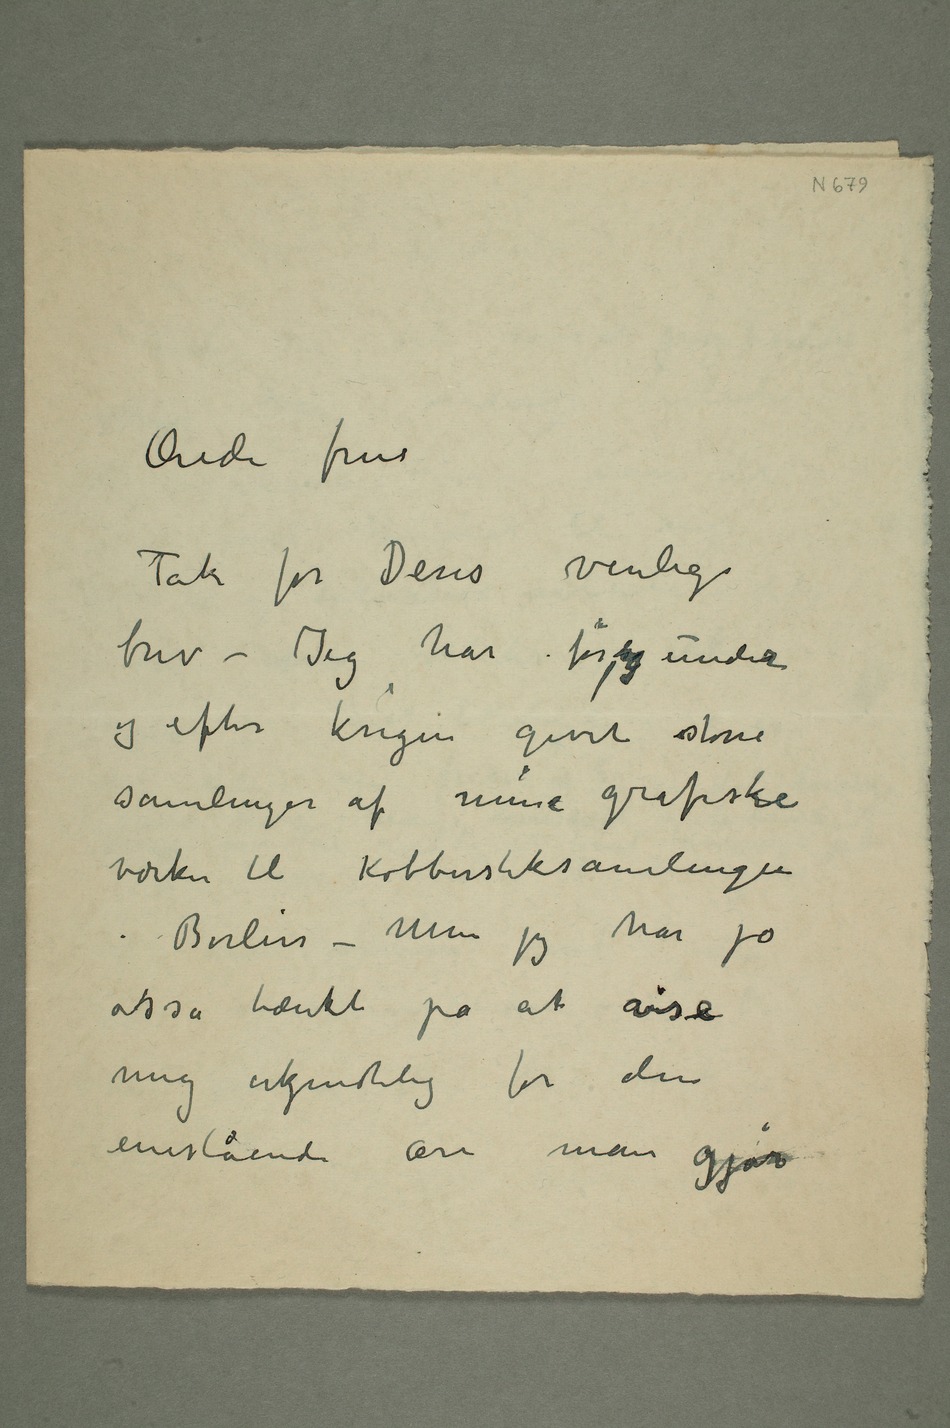 N 679
Ærede frue
Tak for Deres venlige
brev – Jeg har før, under
og efter krigen givet større
samlinger af mine grafiske
værker til Kobberstiksamlingen
i Berlin – Men jeg har jo
også tænkt på at vise
mig erkjendtlig for den
enestående ære man gjør